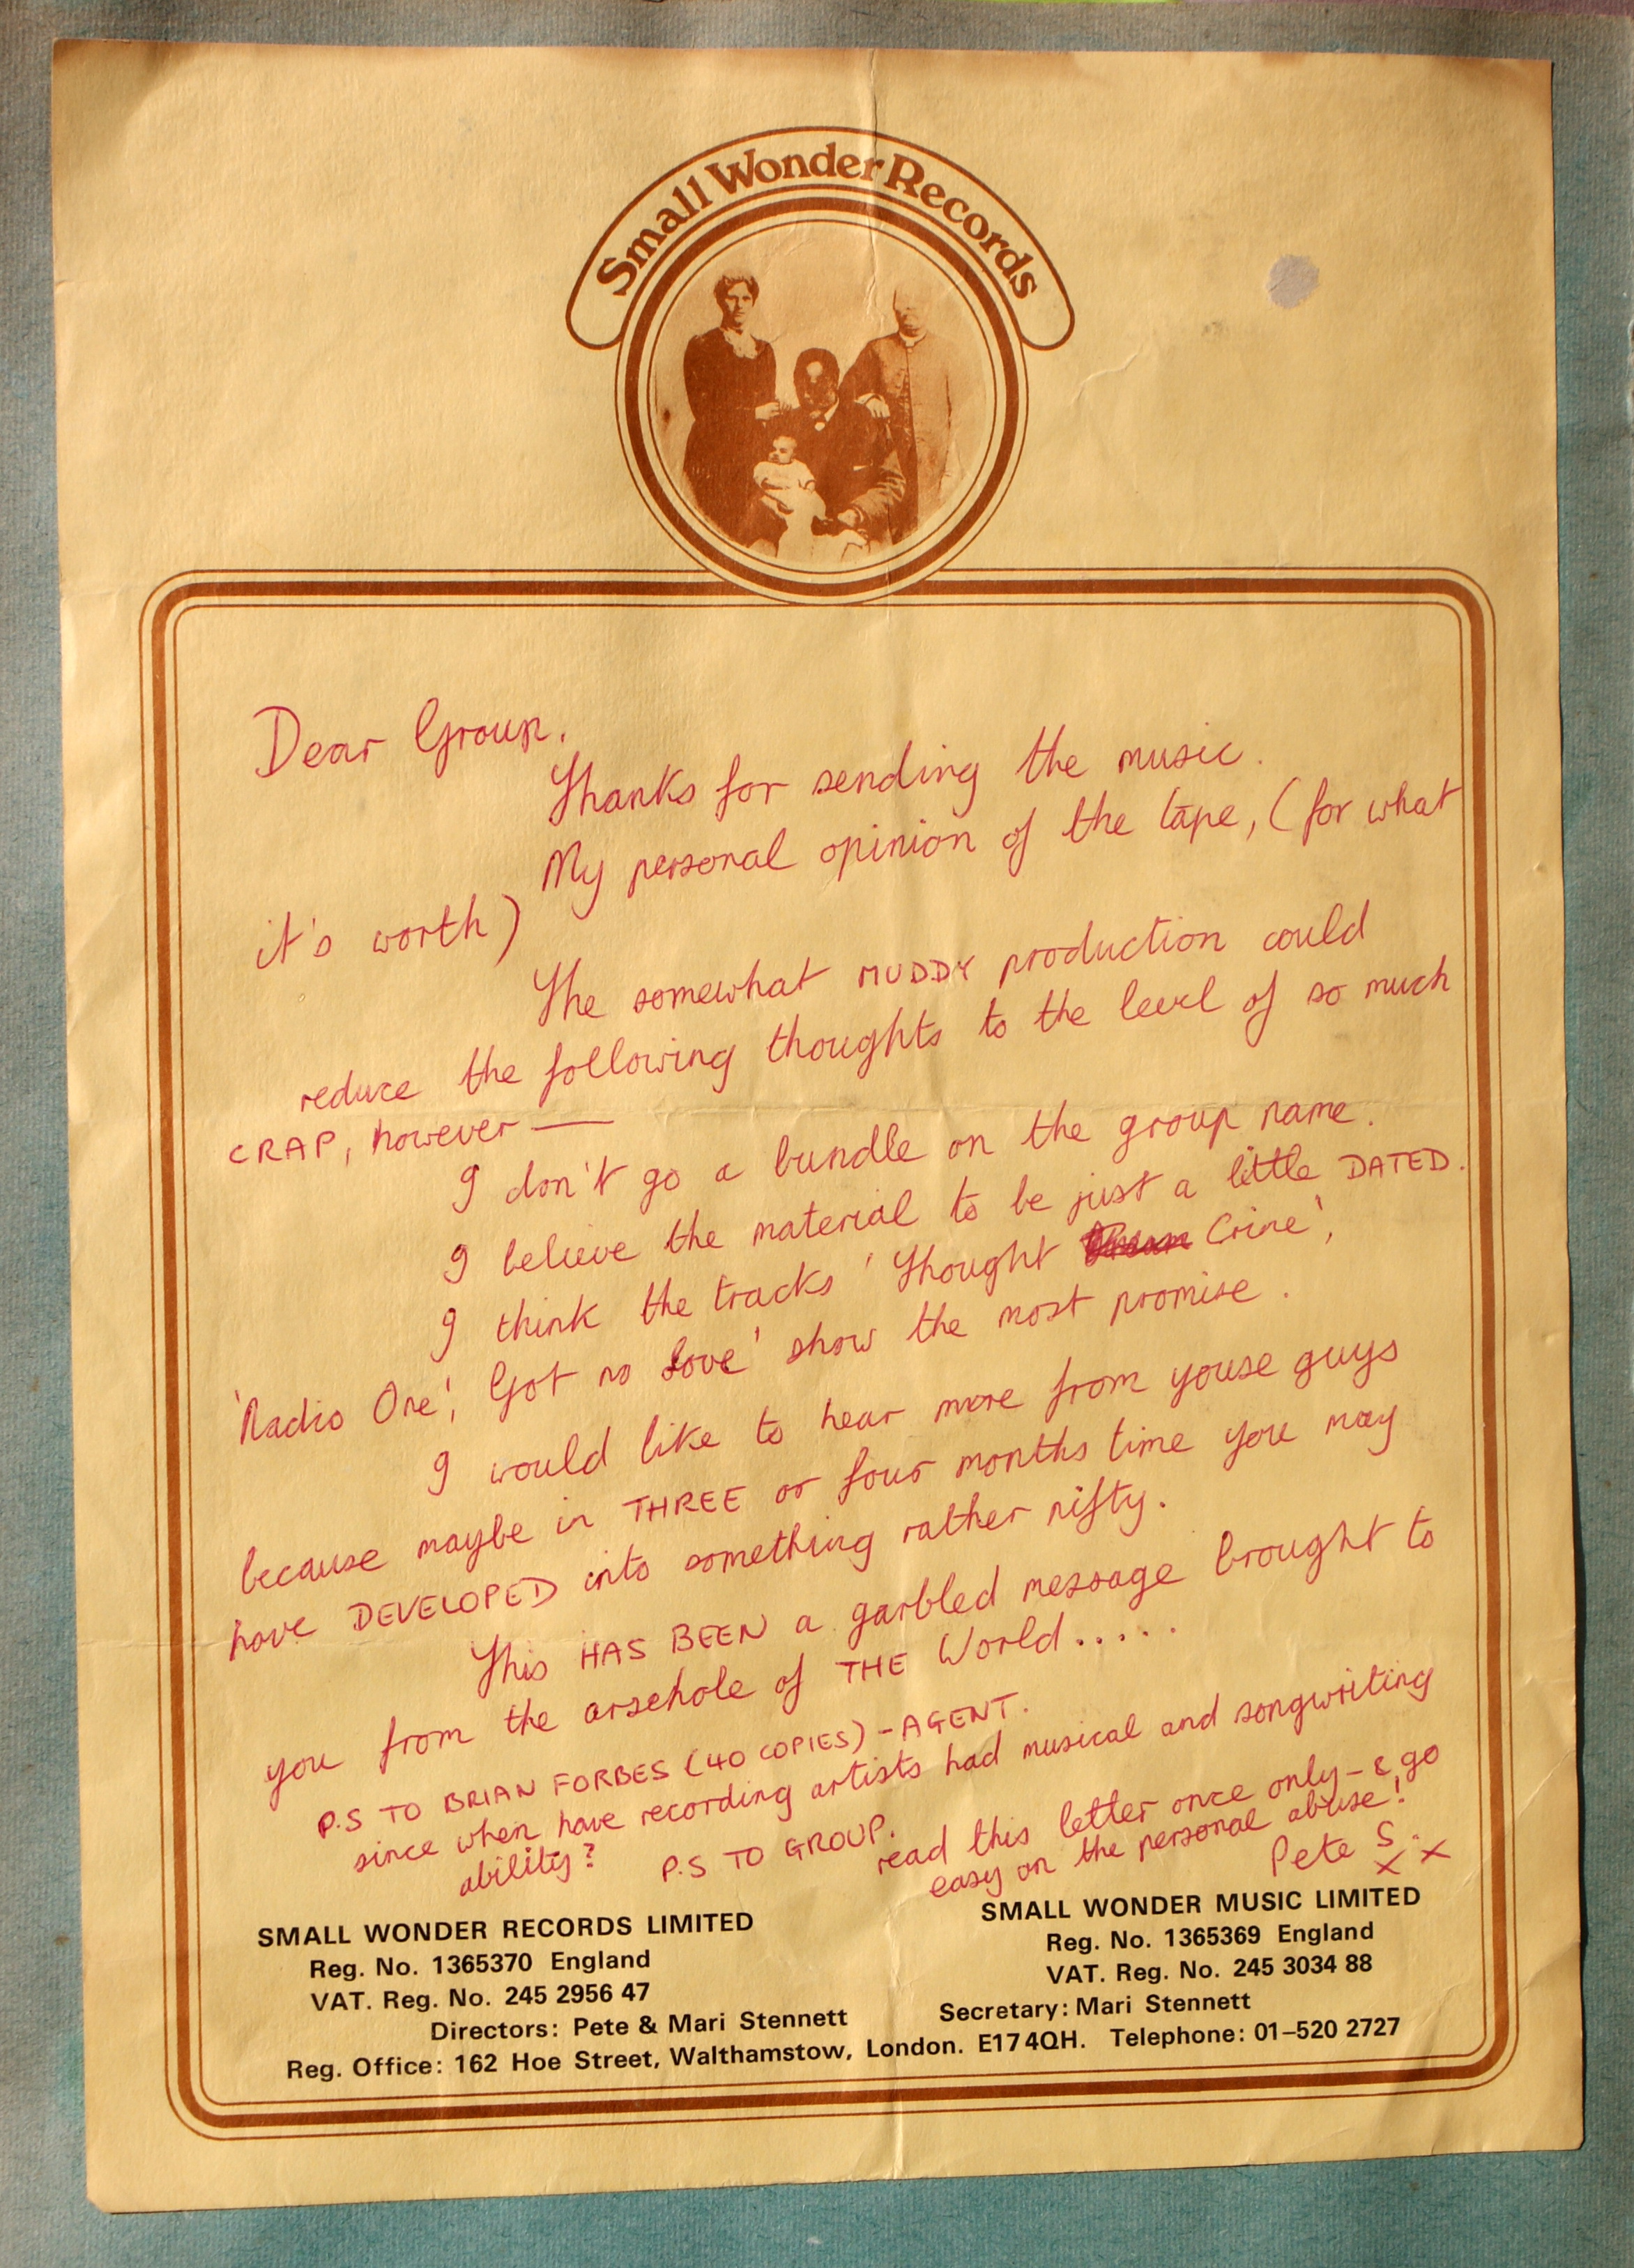 Small Wonder Records
Dear Group,
Thanks for sending the music.
My personal opinion of the tape, (for what
it's worth)
The somewhat MUDDY production could
reduce the following thoughts to the level of so much
CRAP, however —
I don't go a bundle on the group name.
I believe the material to be just a little DATED.
I think the tracks 'Thought Crime',
'Radio One', Got no Love' show the most promise.
I would like to hear more from youse guys
because maybe in THREE or four months time you may
have DEVELOPED into something rather nifty.
This HAS BEEN a garbled message brought to
you from the arsehole of THE World.....
P.S TO BRIAN FORBES (40 COPIES) - AGENT.
since when have recording artists had musical and songwriting
ability?
P.S TO GROUP.
read this letter once only - & go
easy on the personal abuse!
Pete S.
x x
SMALL WONDER RECORDS LIMITED
Reg. No. 1365370 England
VAT. Reg. No. 245 2956 47
SMALL WONDER MUSIC LIMITED
Reg. No. 1365369 England
VAT. Reg. No. 245 3034 88
Directors: Pete & Mari Stennett Secretary: Mari Stennett
Reg. Office: 162 Hoe Street, Walthamstow, London. E17 4QH. Telephone: 01-520 2727